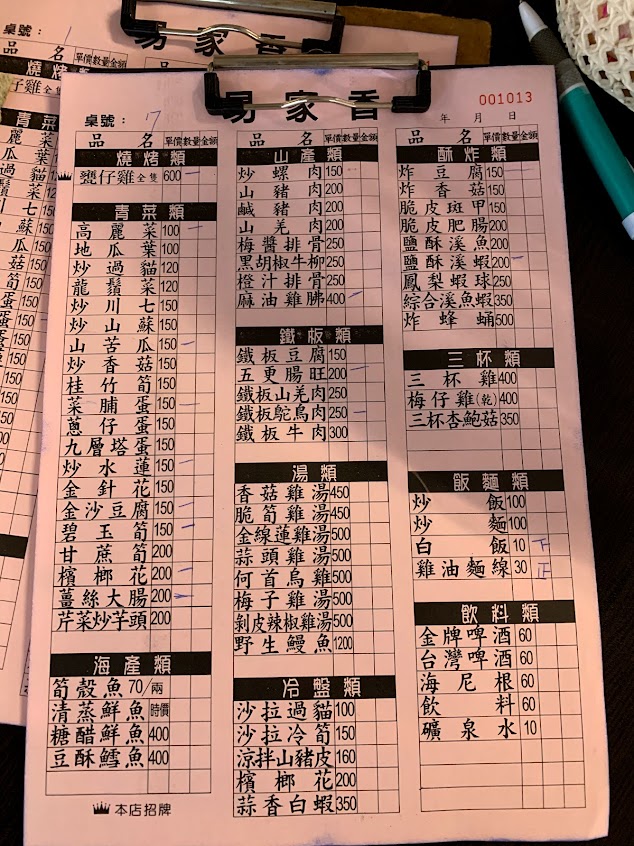 易家香
001013
桌號： 17
年 月 日
品名 單價 數量 金額
燒烤類
甕仔雞全隻 600 一
青菜類
高麗菜 100 一
地瓜葉 100
炒過貓 120
龍鬚菜 120
炒川七 150
炒山蘇 150
山苦瓜 150 一
炒香菇 150
桂竹筍 150
菜脯蛋 150 一
蔥仔蛋 150
九層塔蛋 150
炒水蓮 150 一
金針花 150
金沙豆腐 150 一
碧玉筍 150 一
甘蔗筍 200
檳榔花 200 一
薑絲大腸 200 一
芹菜炒芋頭 200
海產類
筍殼魚 70/兩
清蒸鮮魚 時價
糖醋鮮魚 400
豆酥鱈魚 400
本店招牌
品名 單價 數量 金額
山產類
炒螺肉 150
山豬肉 200
鹹豬肉 200
山羌肉 200
梅醬排骨 250
黑胡椒牛柳 250
橙汁排骨 250
麻油雞胇 400 一
鐵板類
鐵板豆腐 150
五更腸旺 200 一
鐵板山羌肉 250
鐵板鴕鳥肉 250 一
鐵板牛肉 300
湯類
香菇雞湯 450
脆筍雞湯 450
金線蓮雞湯 500
蒜頭雞湯 500
何首烏雞 500
梅子雞湯 500
剝皮辣椒雞湯 500
野生鰻魚 1200
冷盤類
沙拉過貓 100
沙拉冷筍 150
涼拌山豬皮 160
檳榔花 200
蒜香白蝦 350
品名 單價 數量 金額
酥炸類
炸豆腐 150 一
炸香菇 150
脆皮斑甲 150
脆皮肥腸 200
鹽酥溪魚 200
鹽酥溪蝦 200 一
鳳梨蝦球 250
綜合溪魚蝦 350
炸蜂蛹 500
三杯類
三杯雞 400
梅仔雞(乾) 400
三杯杏鮑菇 350
飯麵類
炒飯 100
炒麵 100
白飯 10 下
雞油麵線 30 正
飲料類
金牌啤酒 60
台灣啤酒 60
海尼根 60
飲料 60
礦泉水 10
易家香
桌號：
品名 單價 數量 金額